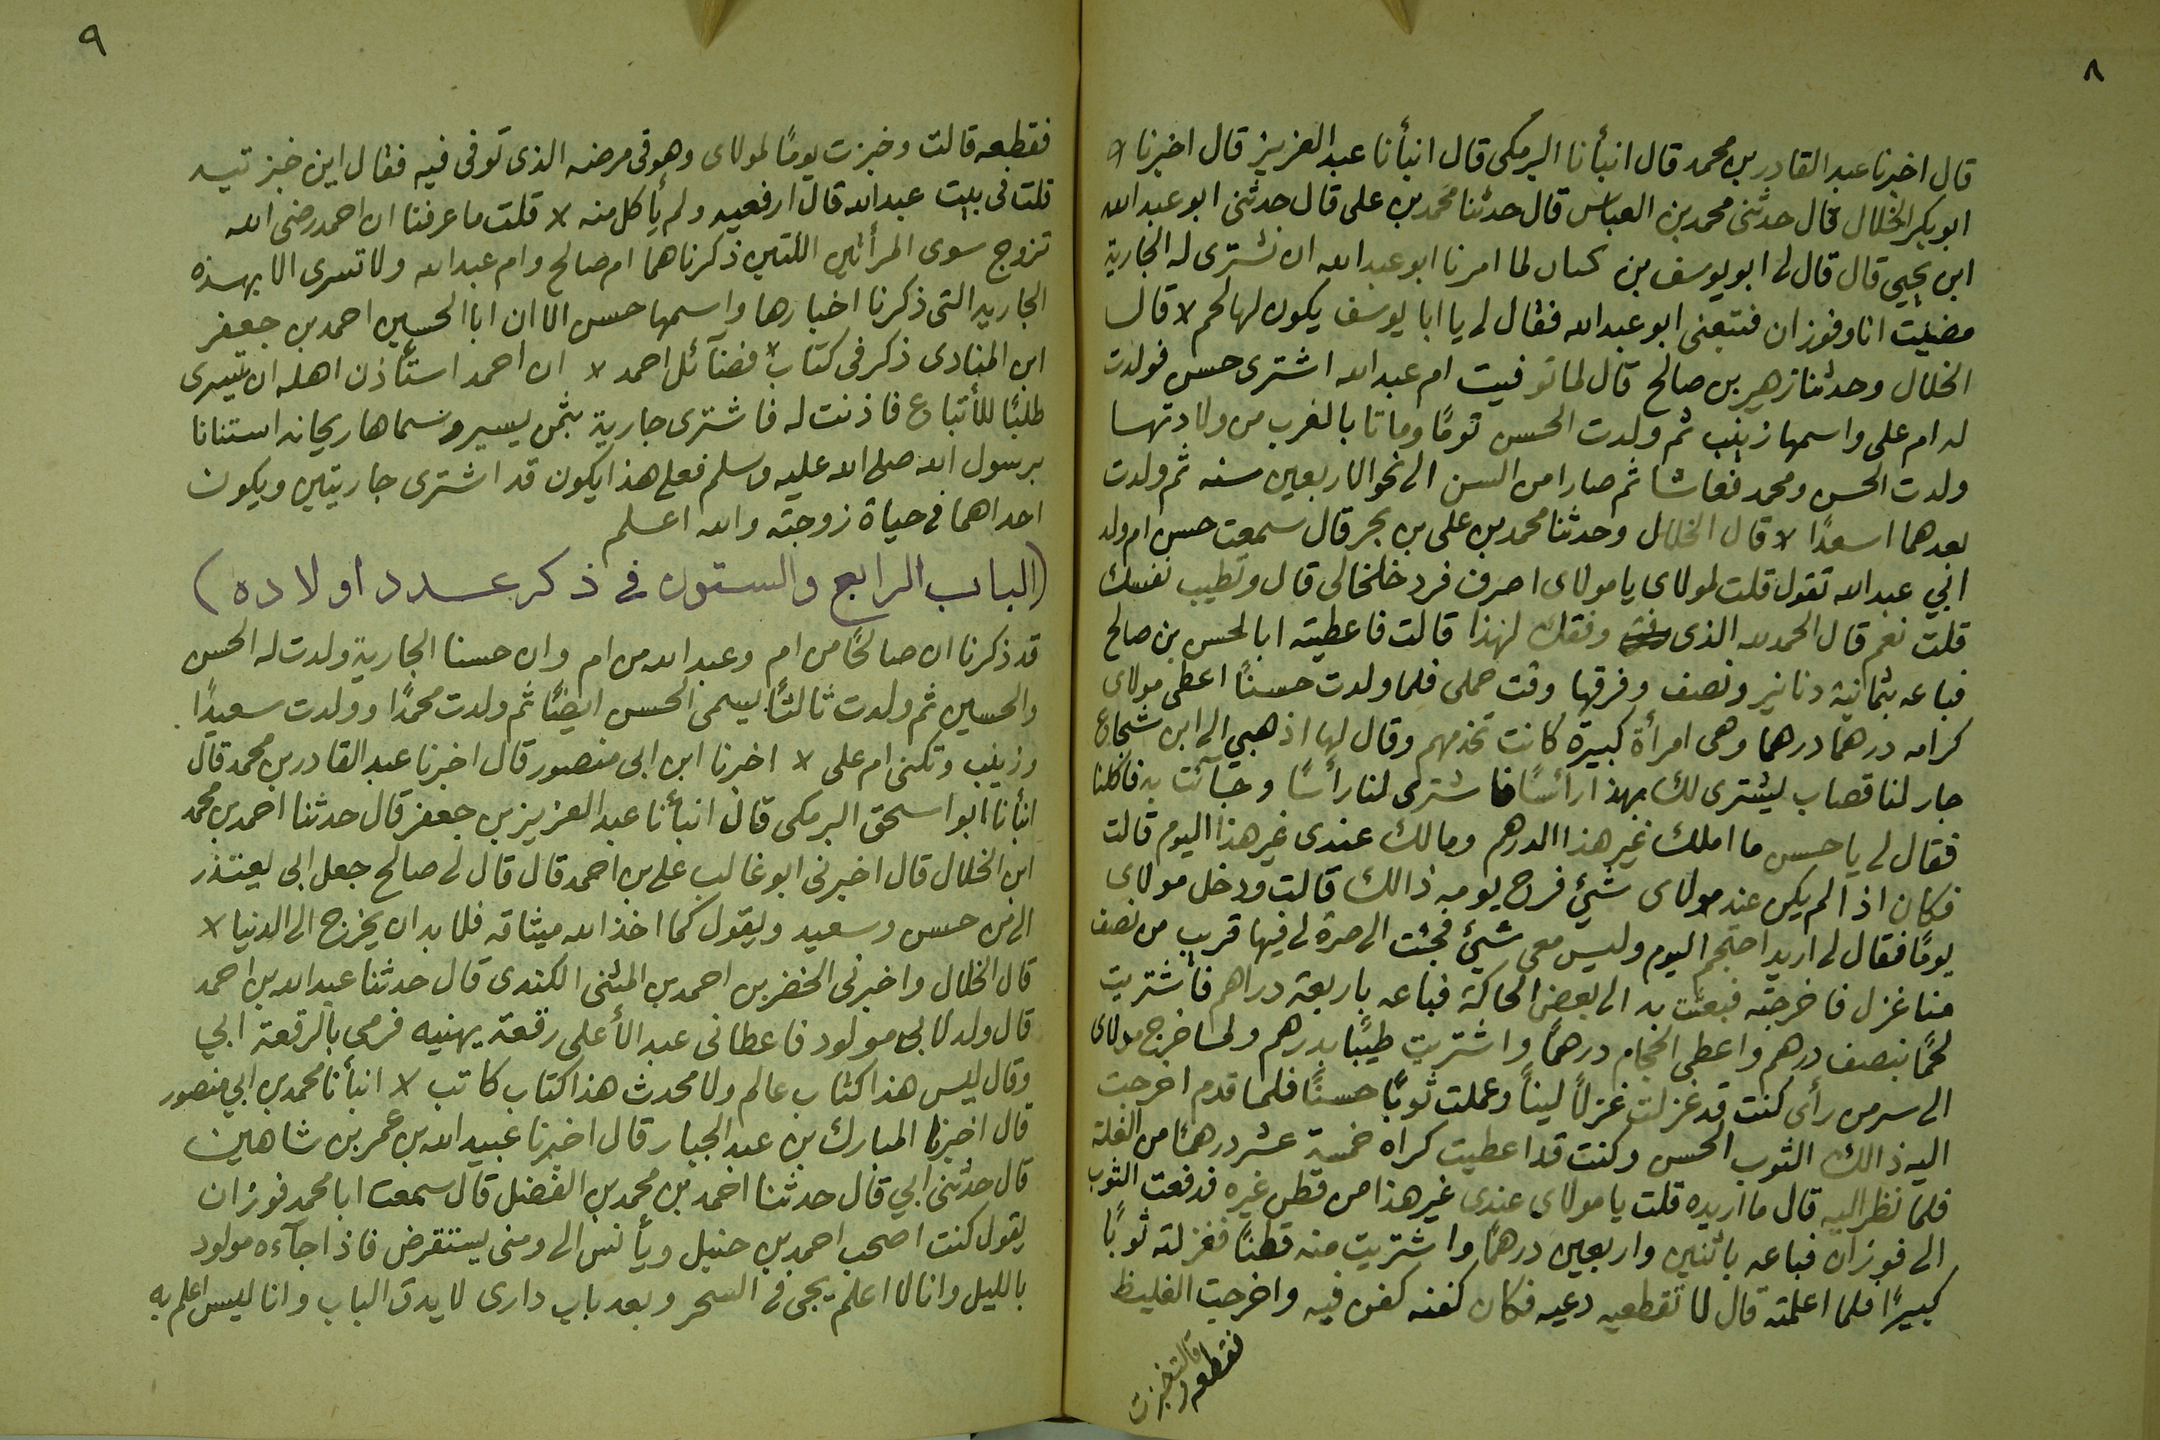 ٨
قال اخبرنا عبد القادر بن محمد قال انبأنا البرمكى قال انبأنا عبد العزيز قال اخبرنا
ابو بكر الخلال قال حدثنى محمد بن العباس قال حدثنا محمد بن على قال حدثنى ابو عبد الله
ابن يحيى قال قال لى ابو يوسف بن لما امرنا ابو عبد الله ان نشترى له الجارية
مضيت انا وفوزان فتبعنى ابو عبد الله فقال لى يا ابا يوسف يكون لها لحم لا قال
الخلال وحدثنا زهير بن صالح قال لما توفيت ام عبد الله اشترى حسن فولدت
له ام على واسمها زينب ثم ولدت الحسن تومًا وماتا بالقرب من ولادتهما
ولدت الحسن ومحمد فعاشا ثم صارا من السن الى نحو الاربعين سنه ثم ولدت
بعدهما اسعدًا لا قال الخلال وحدثنا محمد بن على بن بحر قال سمعت حسن ام ولد
ابي عبد الله تقول قلت لمولاى يا مولاى اصرف فرد خلخالى قال وتطيب نفسك
قلت نعم قال الحمد لله الذى وفقك لهذا قالت فاعطيته ابا الحسن بن صالح
فباعه بثمانية دنانير ونصف وفرقها وقت حملى فلما ولدت حسنًا اعطى مولاى
كرامه درهما درهما وهى امرأة كبيرة كانت تخدمهم وقال لها اذهبي الى ابن شجاع
جار لنا قصاب ليشترى لك بهذا رأسًا فاشترى لنا رأسًا وجآئت به فاكلنا
فقال لى يا حسن ما املك غير هذا الدرهم ومالك عندى غير هذا اليوم قالت
فكان اذا لم يكن عند مولاى شيئ فرح يومه ذالك قالت ودخل مولاى
يومًا فقال لى اريد احتجم اليوم وليس معى شيئ فجئت الى جرة لى فيها قريب من نصف
منا غزل فاخرجته فبعثت به الى بعض الحاكة فباعه باربعة دراهم فاشتريت
لحمًا بنصف درهم واعطى الحجام درهمًا واشتريت طيبًا بدرهم ولما خرج مولاى
الى سر من رأى كنت قد غزلت غزلًا لينًا وعملت ثوبًا حسنًا فلما قدم اخرجت
اليه ذالك الثوب الحسن وكنت قد اعطيت كراه خمسة عشر درهمًا من الغلة
فلما نظر اليه قال ما اريده قلت يا مولاى عندى غير هذا من قطن غيره فدفعت الثوب
الى فوزان فباعه باثنين واربعين درهمًا واشتريت منه قطنًا فغزلته ثوبًا
كبيرًا فلما اعلمته قال لا تقطعيه دعيه فكان كفنه كفن فيه واخرجت الغليظ
فقطعه قالت وخبزت
٩
فقطعه قالت وخبزت يومًا لمولاى وهو فى مرضه الذى توفى فيه فقال اين خبزتيه
قلت فى بيت عبد الله قال ارفعيه ولم يأكل منه لا قلت ما عرفنا ان احمد رضى الله
تزوج سوى المرأتين اللتين ذكرناهما ام صالح وام عبد الله ولا تسرى الا بهذه
الجاريه التى ذكرنا اخبارها واسمها حسن الا ان ابا الحسين احمد بن جعفر
ابن المنادى ذكر فى كتاب فضآئل احمد لا ان احمد استأذن اهله ان يتسرى
طلبًا للأتباع فاذنت له فاشترى جارية بثمن يسير وسماها ريحانه استنانا
برسول الله صلى الله عليه وسلم فعلى هذا يكون قد اشترى جاريتين ويكون
احداهما فى حياة زوجته والله اعلم
(الباب الرابع والستون فى ذكر عدد اولاده)
قد ذكرنا ان صالحًا من ام وعبد الله من ام وان حسنا الجارية ولدت له الحسن
والحسين ثم ولدت ثالثًا يسمى الحسن ايضًا ثم ولدت محمدًا وولدت سعيدًا
وزينب وتكنى ام على لا اخبرنا ابن ابى منصور قال اخبرنا عبد القادر بن محمد قال
انبأنا ابو اسحق البرمكى قال انبأنا عبد العزيز بن جعفر قال حدثنا احمد بن محمد
ابن الخلال قال اخبرنى ابو غالب على بن احمد قال قال لى صالح جعل ابى يعتذر
الى من حسن وسعيد ويقول كما اخذ الله ميثاقه فلا بد ان يخرج الى الدنيا لا
قال الخلال واخبرنى الخضر بن احمد بن المثنى الكندى قال حدثنا عبد الله بن احمد
قال ولد لابى مولود فاعطانى عبد الأعلى رقعة يهنيه فرمى بالرقعة ابي
وقال ليس هذا كتاب عالم ولا محدث هذا كتاب كاتب لا انبأنا محمد بن ابي منصور
قال اخبرنا المبارك بن عبد الجبار قال اخبرنا عبيد الله بن عمر بن شاهين
قال حدثنى ابي قال حدثنا احمد بن محمد بن الفضل قال سمعت ابا محمد فوزان
يقول كنت اصحب احمد بن حنبل ويأنس الى ومنى يستقرض فاذا جآءه مولود
بالليل وانا لا اعلم يجى فى السحر وبعد باب دارى لا يدق الباب وانا ليس اعلم به